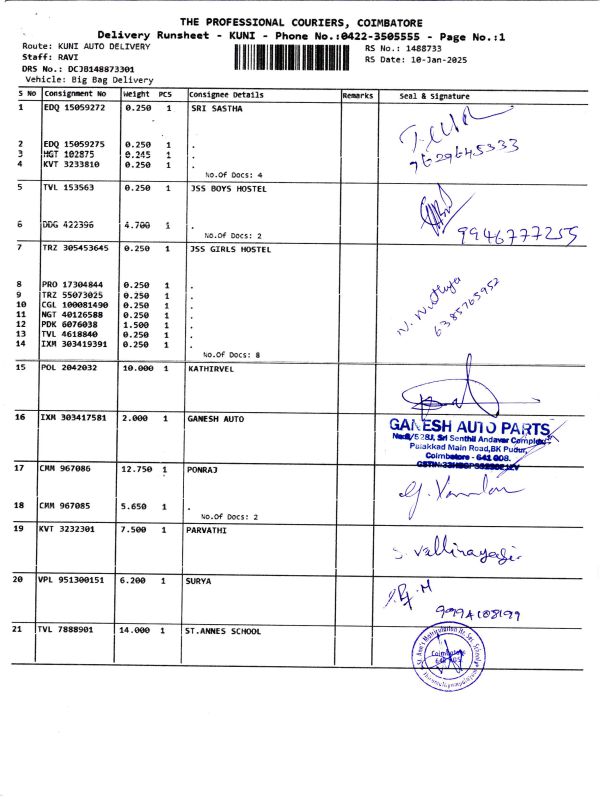 THE PROFESSIONAL COURIERS, COIMBATORE
Delivery Runsheet - KUNI - Phone No.:0422-3505555 - Page No.:1
Route: KUNI AUTO DELIVERY
RS No.: 1488733
Staff: RAVI
RS Date: 10-Jan-2025
DRS No.: DCJB148873301
Vehicle: Big Bag Delivery
S No Consignment No Weight PCS Consignee Details Remarks Seal & Signature
1 EDQ 15059272 0.250 1 SRI SASTHA
2 EDQ 15059275 0.250 1 .
3 HGT 102875 0.245 1 .
7629645333
4 KVT 3233810 0.250 1 .
No.Of Docs: 4
5 TVL 153563 0.250 1 JSS BOYS HOSTEL
6 DDG 422396 4.700 1 .
No.Of Docs: 2
9946777255
7 TRZ 305453645 0.250 1 JSS GIRLS HOSTEL
8 PRO 17304844 0.250 1 .
9 TRZ 55073025 0.250 1 .
10 CGL 100081490 0.250 1 .
11 NGT 40126588 0.250 1 .
12 PDK 6076038 1.500 1 .
13 TVL 4618840 0.250 1 .
14 IXM 303419391 0.250 1 .
6385765952
No.Of Docs: 8
15 POL 2042032 10.000 1 KATHIRVEL
16 IXM 303417581 2.000 1 GANESH AUTO
GANESH AUTO PARTS
Sri Senthil Andavar Complex
Palakkad Main Road,BK Pudur,
Coimbatore - 641 008.
17 CMM 967086 12.750 1 PONRAJ
18 CMM 967085 5.650 1 .
No.Of Docs: 2
19 KVT 3232301 7.500 1 PARVATHI
20 VPL 951300151 6.200 1 SURYA
21 TVL 7888901 14.000 1 ST.ANNES SCHOOL
Coimbatore